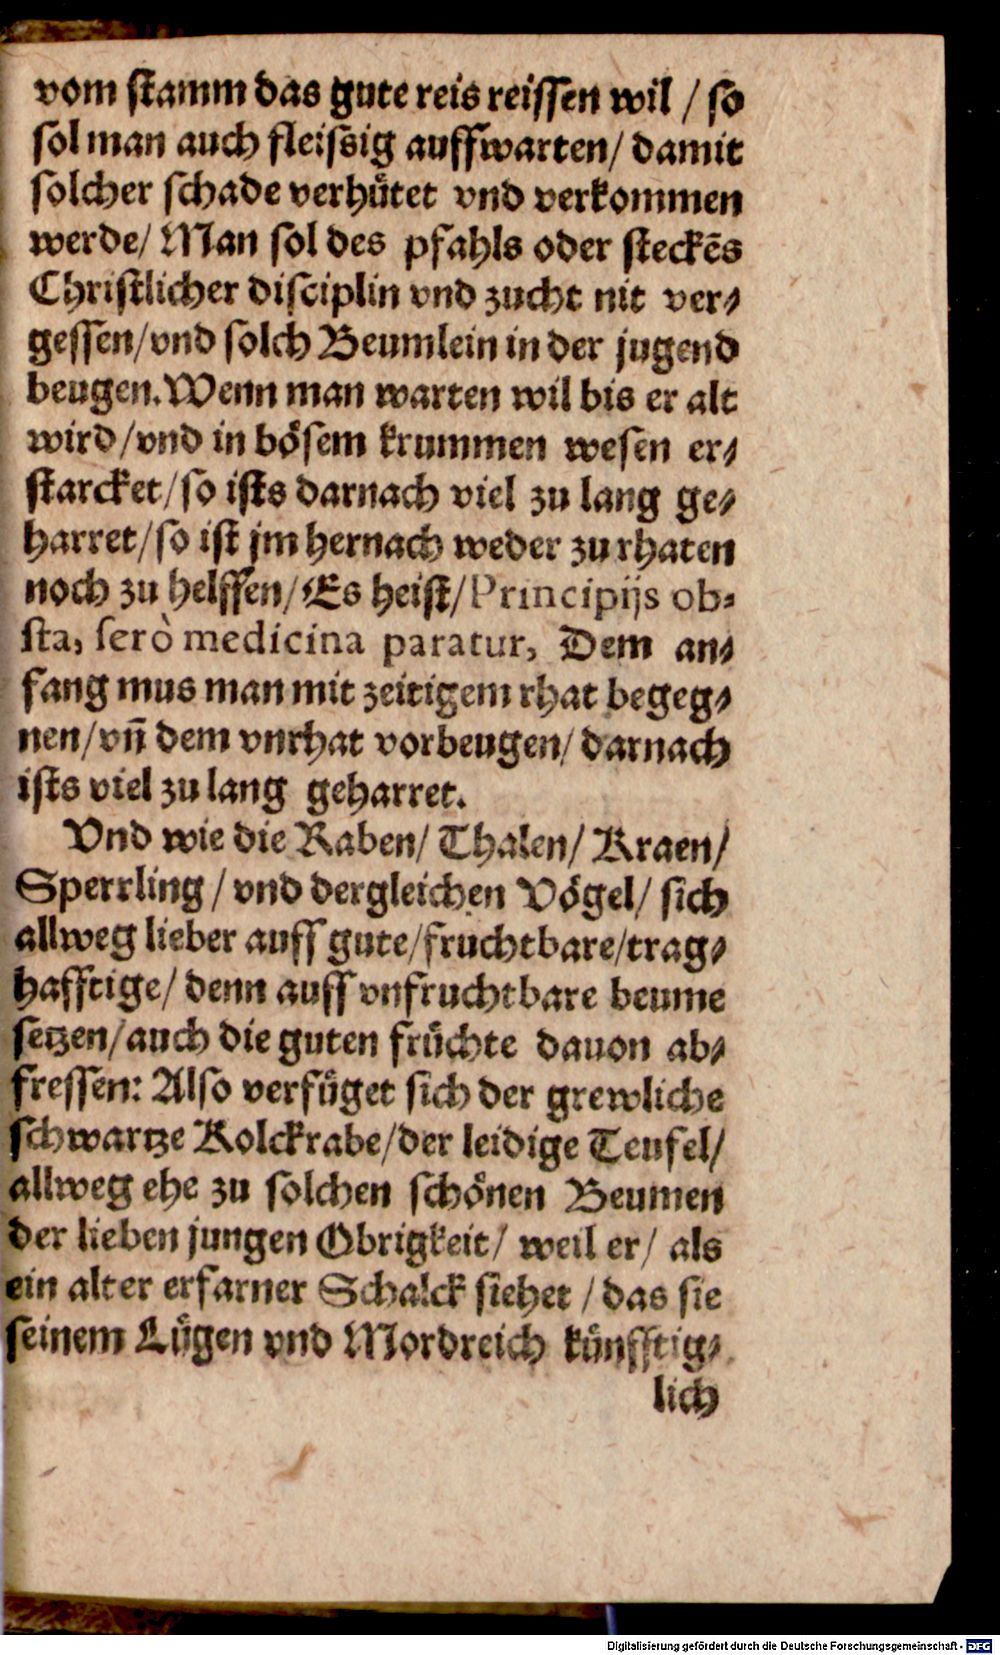 vom stamm das gute reis reissen wil / so
sol man auch fleissig auffwarten / damit
solcher schade verhuͤtet vnd verkommen
werde / Man sol des pfahls oder steckẽs
Christlicher disciplin vnd zucht nit ver⸗
gessen / vnd solch Beumlein in der jugend
beugen. Wenn man warten wil bis er alt
wird / vnd in boͤsem krummen wesen er⸗
starcket / so ists darnach viel zu lang ge⸗
harret / so ist jm hernach weder zu rhaten
noch zu helffen / Es heist / Principijs ob⸗
sta, serò medicina paratur, Dem an⸗
fang mus man mit zeitigem rhat begeg⸗
nen / vñ dem vnrhat vorbeugen / darnach
ists viel zu lang geharret.
Vnd wie die Raben / Thalen / Kraen /
Sperrling / vnd dergleichen Voͤgel / sich
allweg lieber auff gute / fruchtbare / trag⸗
hafftige / denn auff vnfruchtbare beume
setzen / auch die guten fruͤchte dauon ab⸗
fressen: Also verfuͤget sich der grewliche
schwartze Kolckrabe / der leidige Teufel /
allweg ehe zu solchen schoͤnen Beumen
der lieben jungen Obrigkeit / weil er / als
ein alter erfarner Schalck siehet / das sie
seinem Luͤgen vnd Mordreich kuͤnfftig⸗
lich
Digitalisierung gefördert durch die Deutsche Forschungsgemeinschaft - DFG